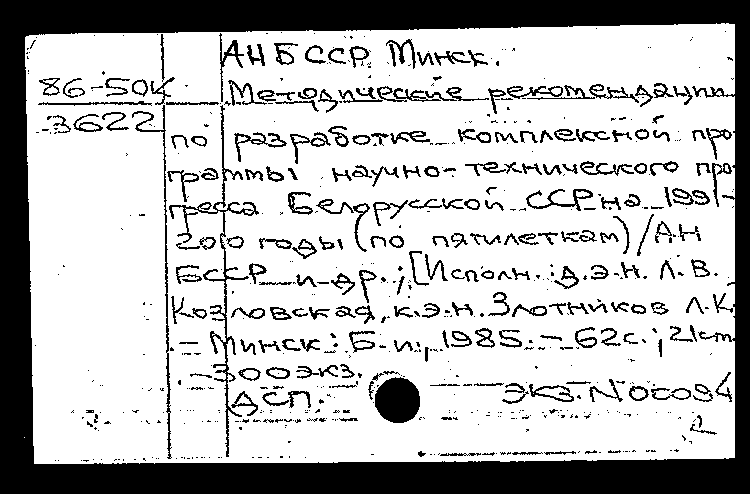 АН БССР. Минск.
86-50К
3622
Методические рекомендации
по разработке комплексной про-
граммы научно-технического про-
гресса Белорусской ССР на 1991-
2010 годы (по пятилеткам)/АН
БССР и др.; [Исполн.: д.э.н. Л.В.
Козловская, к.э.н. Злотников Л.К.
- Минск: Б.и., 1985. - 62с.; 21см
. - 300экз.
ДСП. экз. N 00094